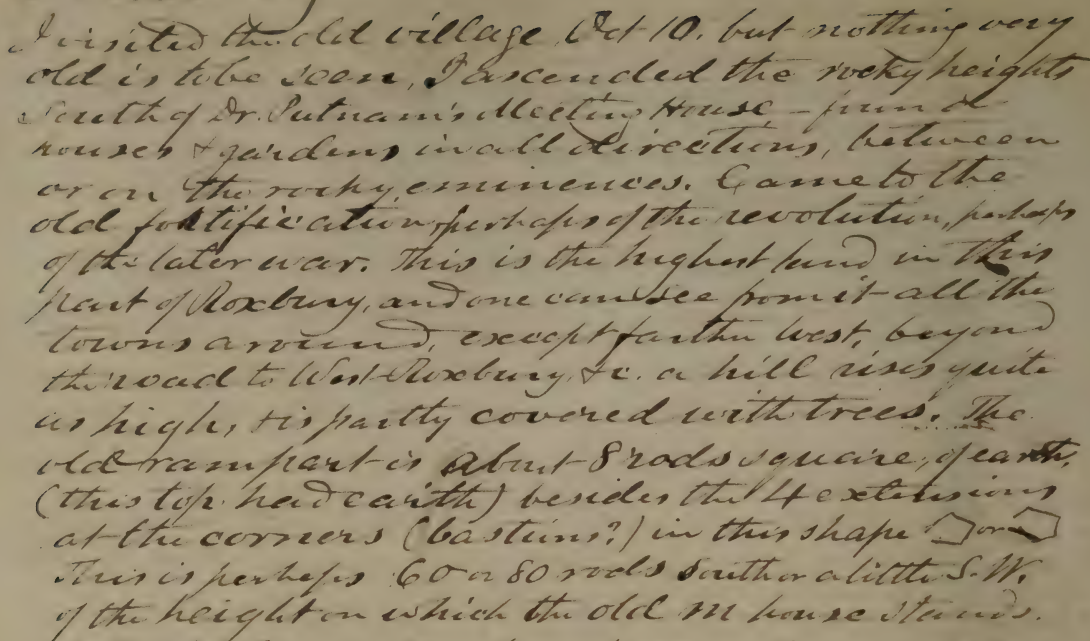 I visited the old village, Oct 10. but nothing very
old is to be seen, I ascended the rocky heights
South of Dr. Putnam's Meeting House – found
houses & gardens in all directions, between
or on the rocky eminences. Came to the
old fortification, perhaps of the revolution, perhaps
of the later war. This is the highest land in this
part of Roxbury, and one can see from it all the
towns around, except farther west, beyond
the road to West-Roxbury, &c. a hill rises quite
as high, & is partly covered with trees. The
old rampart is about 8 rods square, of earth,
(this top had earth) besides the 4 extensions
at the corners (bastions?) in this shape or
This is perhaps 60 or 80 rods south or a little S.W.
of the height on which the old m house stands.